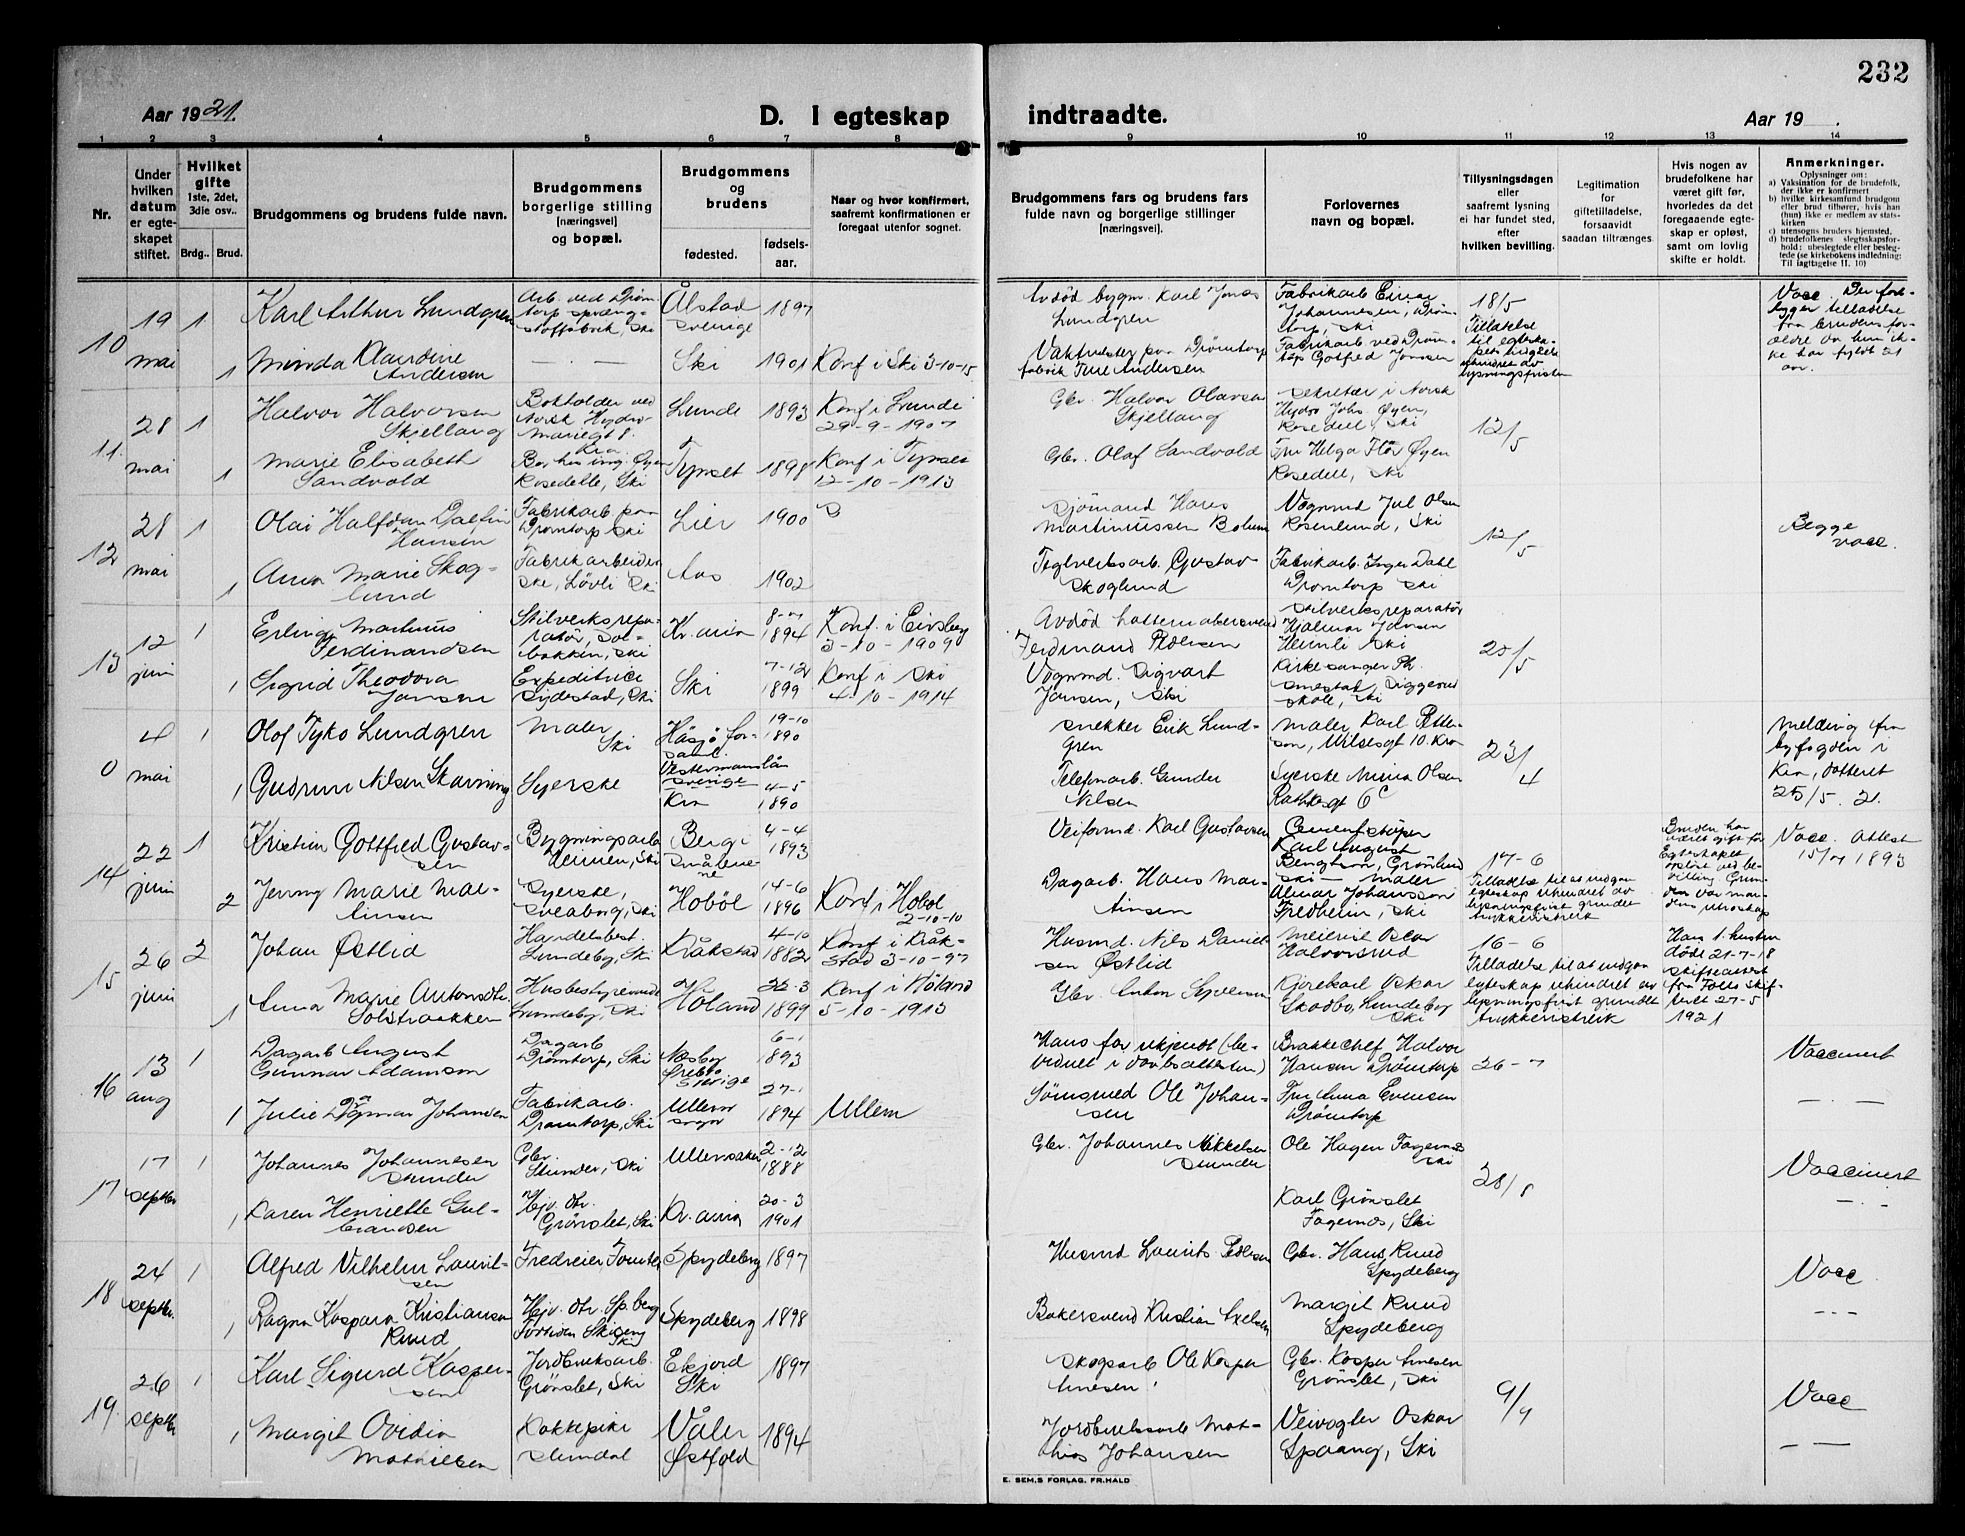 232
Aar 1921.
D. I egteskap indtraadte.
Aar 19 .
1 2 3 4 5 6 7 8 9 10 11 12 13 14
Nr.
Under hvilken datum er egteskapet stiftet.
Hvilket gifte 1ste, 2det, 3die osv..
Brdg.. Brud.
Brudgommens og brudens fulde navn.
Brudgommens borgerlige stilling [næringsvei] og bopæl.
Brudgommens og brudens
fødested.
fødsels-aar.
Naar og hvor konfirmert, saafremt konfirmationen er foregaat utenfor sognet.
Brudgommens fars og brudens fars fulde navn og borgerlige stillinger [næringsvei].
Forlovernes navn og bopæl.
Tillysningsdagen eller saafremt lysning ei har fundet sted, efter hvilken bevilling.
Legitimation for giftetilladelse, forsaavidt saadan tiltrænges.
Hvis nogen av brudefolkene har været gift før, hvorledes da det foregaaende egteskap er opløst, samt om lovlig skifte er holdt.
Anmerkninger.
Oplysninger om:
a) Vaksination for de brudefolk, der ikke er konfirmert
b) hvilke kirkesamfund brudgom eller brud tilhører, hvis han (hun) ikke er medlem av statskirken
c) utensogns bruders hjemsted,
d) brudefolkenes slegtsskapsforhold: ubeslegtede eller beslegtede (se kirkebokens indledning: Til iagttagelse II. 10)
10 19 mai 1 Karl Arthur Lundgren
Arb. ved Drømtorp sprængstoffabrik, Ski
Ålstad Sverige 1897
Avdød bygm. Karl Jonas Lundgren
Fabrikarb Einar Johannesen, Drømtorp, Ski
18/5
Tilladelse til egteskapets
Vacc.
1 Minda Klaudine Andersen
— —
Ski 1901 Konf i Ski 3-10-15
Drømtorp fabrik Ture Andersen
Fabrikarb ved Drømtorp Gotfred Jonsen
11 28 mai 1 Halvor Halvorsen Skjellaug
Bokholder ved Norsk Hydro
Lunde 1893 Konf i Lunde 29-9-1907
Gbr. Halvor Olavsen Skjellaug
Sekretær i Norsk Hydro Johs Øyen, Rosedell, Ski
12/5
1 Marie Elisabeth Sandvold
Bor hos ing. Øyen Rosedelle, Ski
Tynset 1898 Konf i Tynset 12-10-1913
Gbr. Olaf Sandvold
Fru Helga Flor Øyen Rosedell, Ski
12 28 mai 1 Olai Halfdan Dalfin Hansen
Fabrikarb. paa Drømtorp Ski
Lier 1900
Sjømand Hans Martinussen
Vognmd Jul Olsen Rosenlund, Ski
12/5
Begge vacc.
1 Anna Marie Skoglund
Fabrikarbeiderske, Løvli Ski
Aas 1902
Teglverksarb. Gustav Skoglund
Fabrikarb. Inger Dahl Drømtorp Ski
13 12 juni 1 Erling Martinius Ferdinandsen
Solbakken, Ski
Kr.ania 1894
Konf. i Eivsberg 3-10-1909
Avdød hattemakersvend Ferdinand Pedersen
Hjalmar Jansen Heimli Ski
25/5
1 Sigrid Theodora Jansen
Expeditrice Sydestad, Ski
Ski 7-12 1899
Konf i Ski 4-10-1914
Vognmd. Sigvart Jansen, Ski
Kirkesanger Th. Smestad, Siggerud skole, Ski
0 4 mai 1 Olof Tyko Lundgren
Maler Ski
Vestermanslän Sverige
19-10 1890
Snekker Erik Lundgren
Maler Karl Pettersson, Nilsesgt 10. Kra
23/4
Melding fra byfogden i Kra, datteret 25/5. 21.
1 Gudrun Nilsen Skavning
Syerske
Kra 4-5 1890
Telefonarb. Gunder Nilsen
Syerske Minna Olsen Rathkesgt 6c
14 22 juni 1 Kristian Gottfred Gustavsen
Bygningsarb. Heimen, Ski
Berg i Smålenene
4-4 1893
Veiformd. Karl Gustavsen
Cementstøper Karl August Bengtson, Grønlund Ski
17-6
Tilladelse til at indgaa egteskap uhindret av lysningsfrist grundet trykkeristreik
Bruden har været gift før
Vacc. attest 15/7 1893
2 Jenny Marie Martinsen
Syerske, Sveaborg, Ski
Hobøl 14-6 1896
Konf i Hobøl 2-10-10
Dagarb. Hans Martinsen
Maler Almar Johansson Fredheim, Ski
15 26 juni 2 Johan Østlid
Handelsbest. Lundeby, Ski
Kråkstad 4-10 1882
Konf i Kråkstad 3-10-97
Husmd. Nils Danielsen Østlid
Meieriet Oscar Halvorsrud
16-6
Tilladelse til at indgaa egteskap uhindret av lysningsfrist grundet trykkeristreik
Hans 1. hustru døde 21-7-18 skifteattest fra Follo skifteret 27-5 1921
1 Anna Marie Antonsdtr. Solbrækken
Husbestyrerinde Lundeby, Ski
Høland 1899
Konf i Höland 5-10-1913
Gbr. Anton Syversen
Kjørekarl Oskar Skadbo, Lundeby Ski
16 13 aug 1 Dagarb August Gunnar Adamson
Dagarb Drømtorp, Ski
Næsby Ørebro Sverige
6-1 1893
Hans far ukjendt
Brakkechef Halvor Hansen Drømtorp
26-7
Vaccinert
1 Julie Dagmar Johansen
Fabrikarb. Drømtorp, Ski
1894
Ullern
Ole Johansen
Fru Anna Evensen Drømtorp
— —
17 17 septbr. 1 Johannes Johannesen Slunder
Gbr. Slunder, Ski
Ullensaker 2-12 1888
Gbr. Johannes Mikkelsen Slunder
Ole Hagen Fagernes Ski
28/8
Vaccinert
1 Karen Henriette Gulbrandsen
Hjv. dtr. Grønslet, Ski
Kr.ania 20-3 1901
Karl Grønslet Fagernes, Ski
— -
18 24 septbr. 1 Alfred Vilhelm Lauritsen
Spydeberg 1897
Husmd Laurits Pedersen
Gbr. Hans Ruud Spydeberg
Vacc.
1 Ragna Kaspara Kristiansen Ruud
Hjv. dtr. Sp.berg
Spydeberg 1898
Bakersvend Kristian Axelsen
Margit Ruud Spydeberg
- - -
19. 26 septbr 1 Karl Sigurd Kaspersen
Jordbruksarb. Grønslet, Ski
Ski 1897
Skogsarb Ole Kasper Arnesen
Gbr. Kasper Arnesen Grønslet, Ski
9/9
Vacc
1 Margit Ovidia Mathilsen
Kokkepike
Våler Østfold 1894
Jordbruksarb Mathias Johansen
Veivogter Oskar Spaang, Ski
— —
E. SEM.S FORLAG. FR.HALD